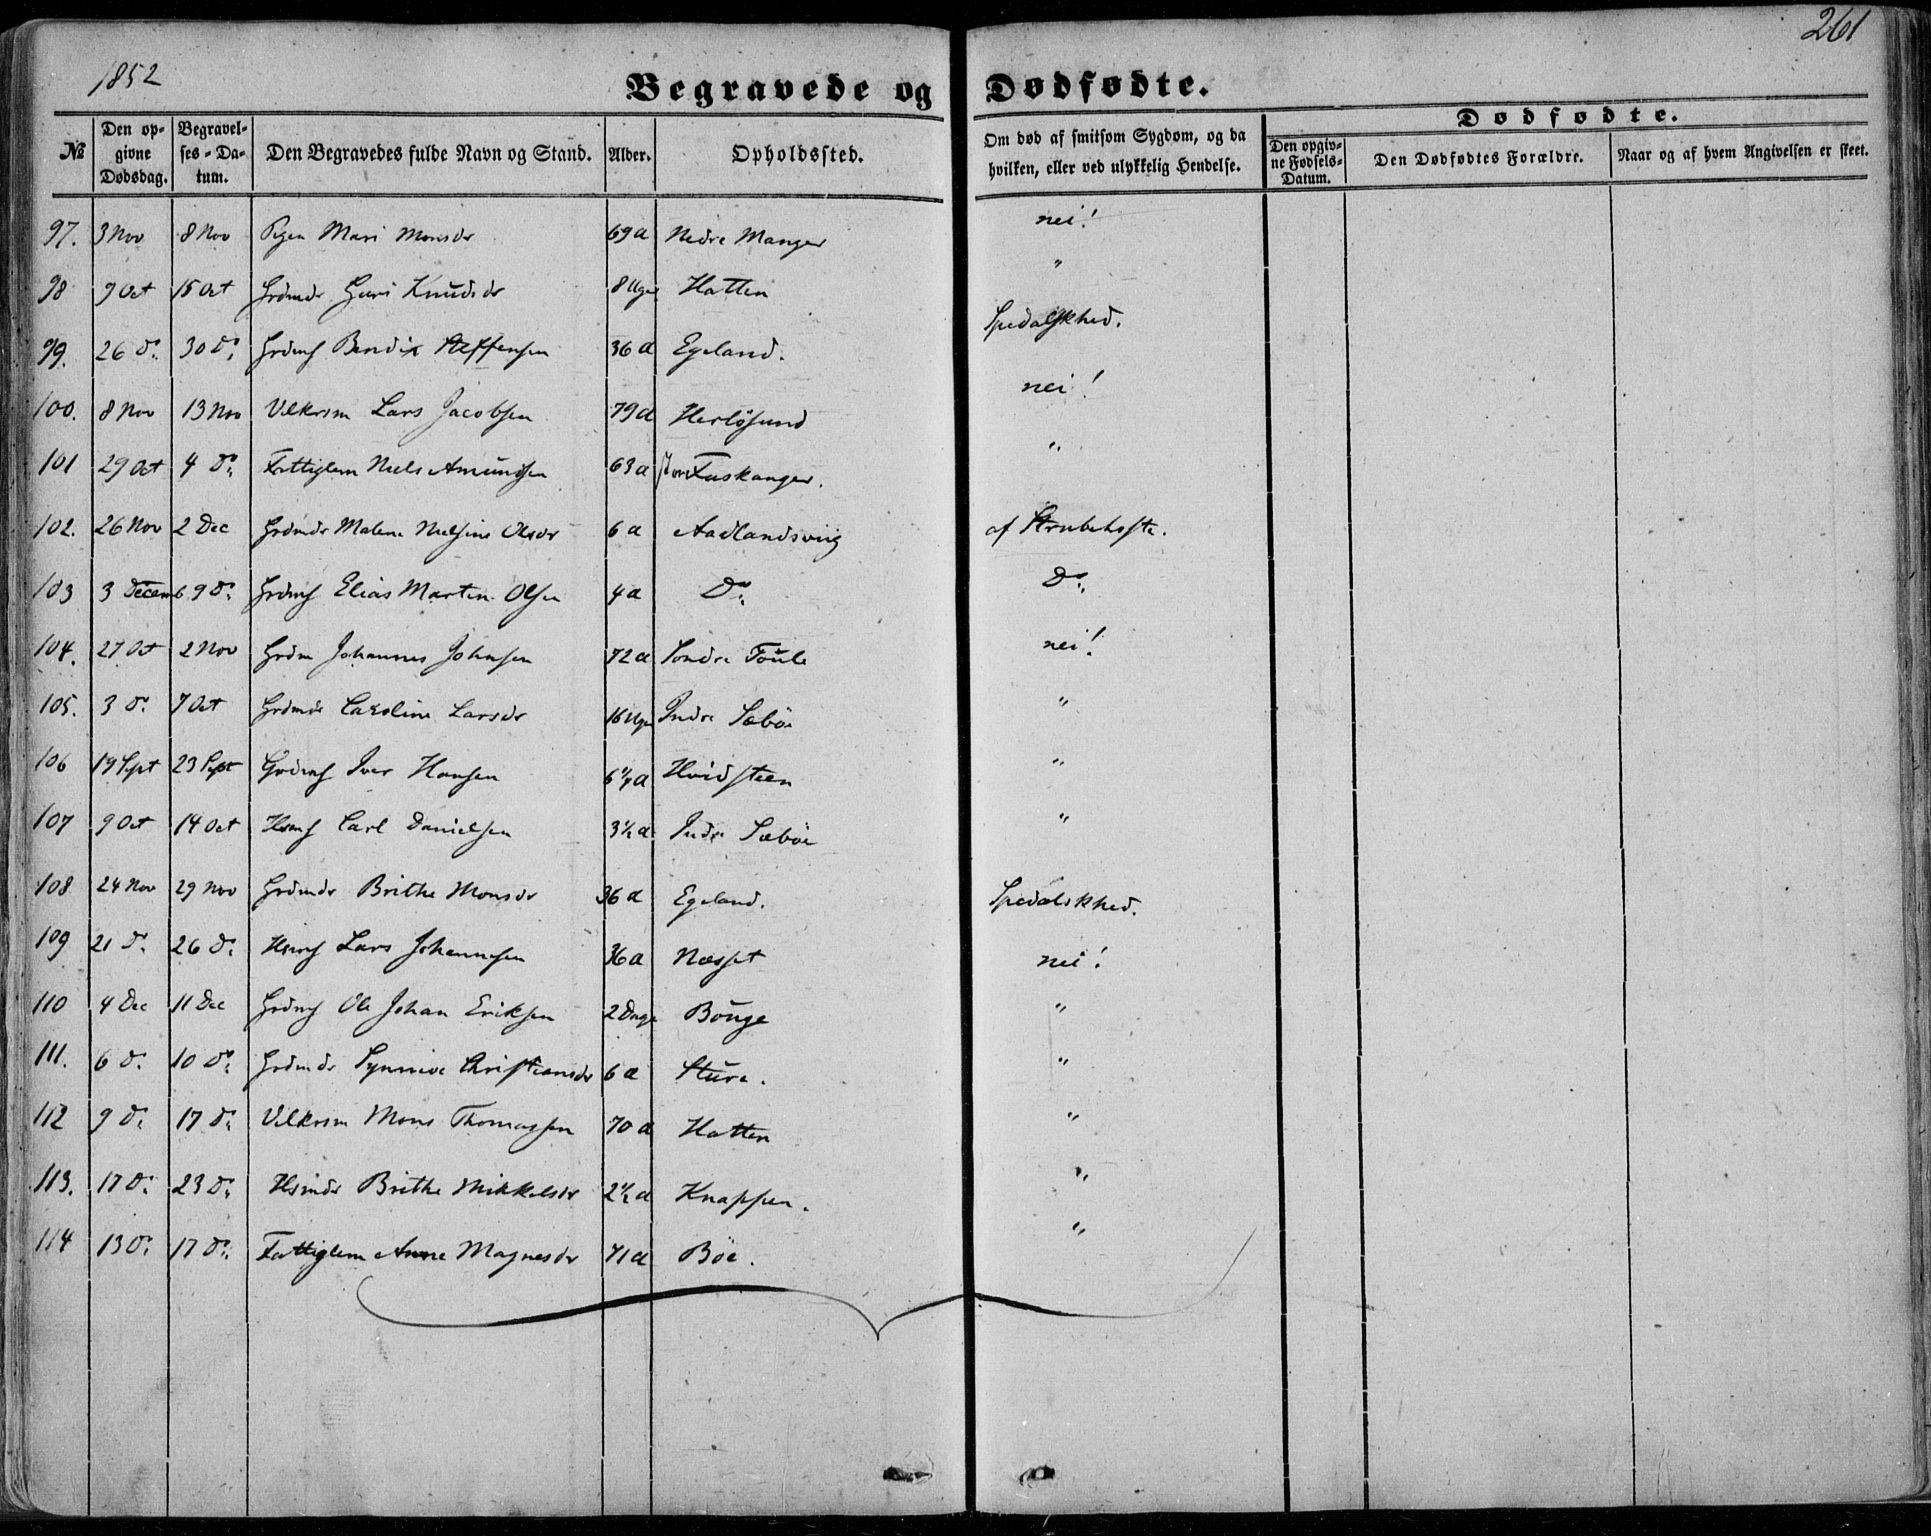 261
1852
Begravede og Dødfødte.
№ Den opgivne Dødsdag. Begravelses-Datum. Den Begravedes fulde Navn og Stand. Alder. Opholdssted. Om død af smitsom Sygdom, og da hvilken, eller ved ulykkelig Hendelse. Dødfødte. Den opgivne Fødsels-Datum. Den Dødfødtes Forældre. Naar og af hvem Angivelsen er skeet.
97. 3 Nov 8 Nov Pigen Mari Monsdr 69 a Nedre Manger nei!
98 9 Oct 15 Oct Grdmdr Guri Knudsdr 8 Uger Hatten "
99. 26 do. 30 do. Grdms Bendix Steffensen 36 a Egeland. Spedalskhed.
100. 8 Nov 13 Nov Vilkrsm Lars Jacobsen 79 a Herlösund nei!
101 29 Oct 4 do. Fattiglem Niels Amundsen 63 a store Fuskanger. "
102. 26 Nov 2 Dec Grdmdr Malene Nielsine Olsdr 6 a Aadlandsviig af Strubehoste.
103 3 Decemb 9 do. Grdms Elias Martin Olsen 4 a Do. Do.
104. 27 Oct 2 Nov Grdm Johannes Johnsen 72 a Söndre Toule nei!
105. 3 do. 7 Oct Grdmdr Caroline Larsdr 16 Uger Indre Sæböe "
106 19 Sept 23 Sept Grdms Iver Hansen 6 1/4 a Hvidsteen "
107 9 Oct 14 Oct Hsms Carl Danielsen 3 1/2 a Indre Sæböe "
108 24 Nov 29 Nov Grdmdr Brithe Monsdr 36 a Egeland. Spedalskhed.
109 21 do. 26 do. Hsms Lars Johannesen 36 a Næsset nei!
110 4 Dec 11 Dec Grdms Ole Johan Eriksen 2 Dage Bouge "
111. 6 do. 10 do. Grdmdr Synnive Christiansdr 6 a Sture. "
112 9 do. 17 do. Vilkrsm Mons Thomassen 70 a Hatten "
113. 17 do. 23 do. Hsmdr Brithe Mikkelsdr 2 1/2 a Knappen. "
114 13 do. 17 do. Fattiglem Anne Magnesdr 71 a Böe. "